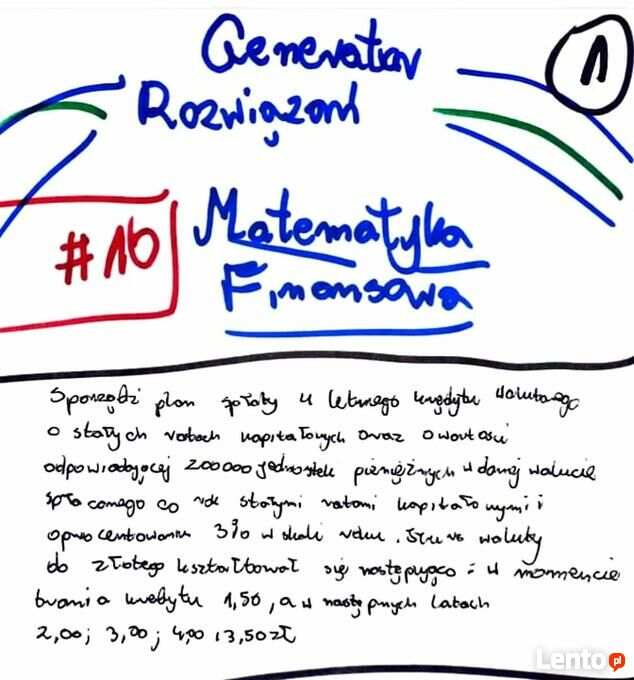 Generator
1
Rozwiązań
#16
Matematyka
Finansowa
Sporządź plan spłaty 4 letniego kredytu walutowego
o stałych ratach kapitałowych oraz o wartości
odpowiadającej 200000 jednostek pieniężnych w danej walucie
spłaconego co rok stałymi ratami kapitałowymi i
oprocentowaniu 3% w skali roku. Kurs waluty
do złotego kształtował się następująco: w momencie
brania kredytu 1,50, a w następnych latach
2,00; 3,00; 4,00 i 3,50 zł
Lento.pl